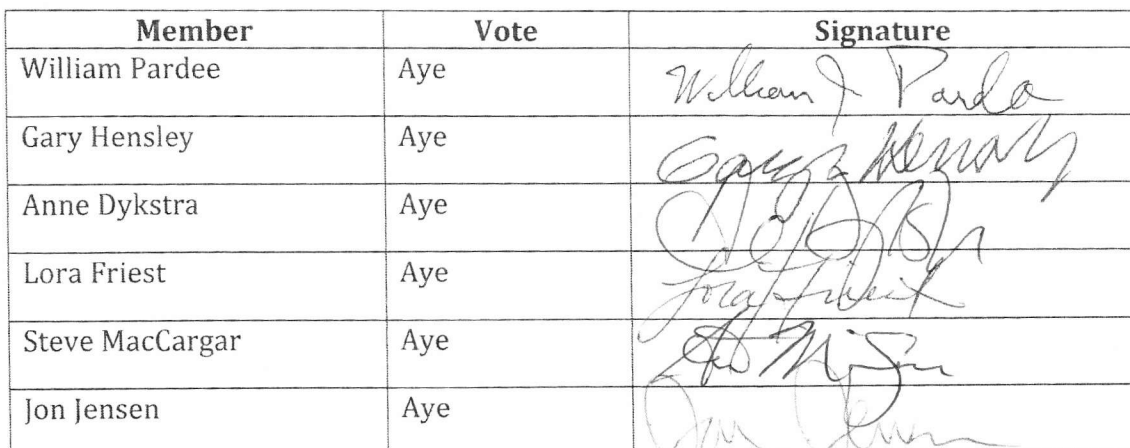 Member Vote Signature
William Pardee Aye William J Pardee
Gary Hensley Aye Gary L Hensley
Anne Dykstra Aye
Lora Friest Aye Lora Friest
Steve MacCargar Aye
Jon Jensen Aye Jon Jensen